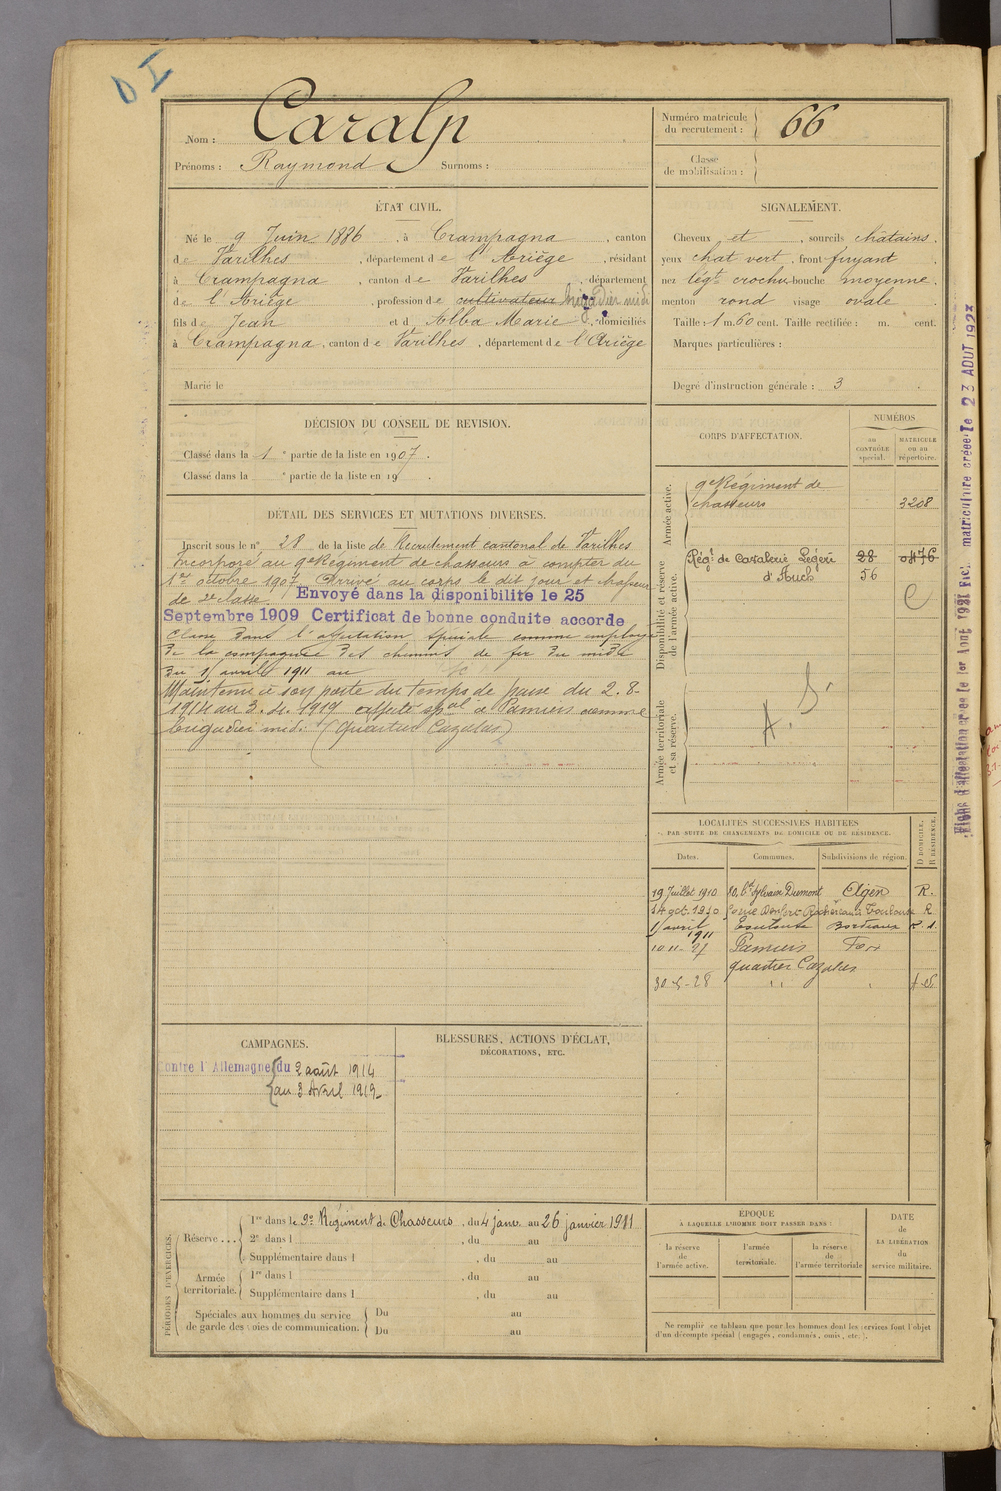 D I
Nom : Caralp
Prénoms : Raymond Surnoms :
Numéro matricule du recrutement : 66
Classe de mobilisation :
ÉTAT CIVIL.
Né le 9 Juin 1886, à Crampagna, canton
de Varilhes, département de l'Ariège, résidant
à Crampagna, canton de Varilhes, département
de l'Ariège, profession de cultivateur brigadier midi
fils de Jean et d Alba Marie, domiciliés
à Crampagna, canton de Varilhes, département de l'Ariège
Marié le
SIGNALEMENT.
Cheveux et, sourcils châtains,
yeux chat vert, front fuyant
nez légt crochu bouche moyenne,
menton rond visage ovale
Taille : 1 m. 60 cent. Taille rectifiée : m. cent.
Marques particulières :
Degré d'instruction générale : 3
DÉCISION DU CONSEIL DE REVISION.
Classé dans la 1e partie de la liste en 1907.
Classé dans la e partie de la liste en 19 .
DÉTAIL DES SERVICES ET MUTATIONS DIVERSES.
Inscrit sous le n° 28 de la liste de Recrutement cantonal de Varilhes
Incorporé au 9e Régiment de chasseurs à compter du
1er octobre 1907. Arrivé au corps le dit jour et chasseur
de 2e classe. Envoyé dans la disponibilité le 25
Septembre 1909 Certificat de bonne conduite accorde
Classé dans l'affectation spéciale comme employé
de la compagnie des chemins de fer du midi
du 1 avril 1911 au
Maintenu à son poste du temps de paix du 2-8-
1914 au 3-4-1919 affecté spal à Pamiers comme
brigadier midi. (Quartier Cazalas)
CORPS D'AFFECTATION.
NUMÉROS
au CONTRÔLE spécial.
MATRICULE ou au répertoire.
Armée active.
9e Régiment de
chasseurs 3208
Disponibilité et réserve de l'armée active.
Régt de Cavalerie Légère 28 0476
d'Auch 56
Armée territoriale et sa réserve.
A. S.
LOCALITÉS SUCCESSIVES HABITÉES
PAR SUITE DE CHANGEMENTS DE DOMICILE OU DE RÉSIDENCE.
Dates. Communes. Subdivisions de région. D. DOMICILE. R. RÉSIDENCE.
19 Juillet 1910 80, Bt Sylvain Dumont Agen R.
14 oct. 1910 rue Denfert Rochereau Toulouse R
1 avril 1911 Toulouse Bordeaux
10-11-27 Pamiers Foix
quartier Cazalas
30-5-28 " "
CAMPAGNES.
Contre l'Allemagne du 2 août 1914
au 3 Avril 1919
BLESSURES, ACTIONS D'ÉCLAT,
DÉCORATIONS, ETC.
PÉRIODES D'EXERCICES.
Réserve...
1re dans le 9e Régiment de Chasseurs, du 4 janv. au 26 janvier 1911
2e dans l , du au
Supplémentaire dans l , du au
Armée territoriale.
1re dans l , du au
Supplémentaire dans l , du au
Spéciales aux hommes du service de garde des voies de communication.
Du au
Du au
ÉPOQUE
À LAQUELLE L'HOMME DOIT PASSER DANS :
la réserve de l'armée active.
l'armée territoriale.
la réserve de l'armée territoriale
DATE de LA LIBÉRATION du service militaire.
Ne remplir ce tableau que pour les hommes dont les services font l'objet
d'un décompte spécial (engagés, condamnés, omis, etc.).
matriculaire créée le 23 AOUT 1927
Fiche d'affectation créée le 1er Août 1921